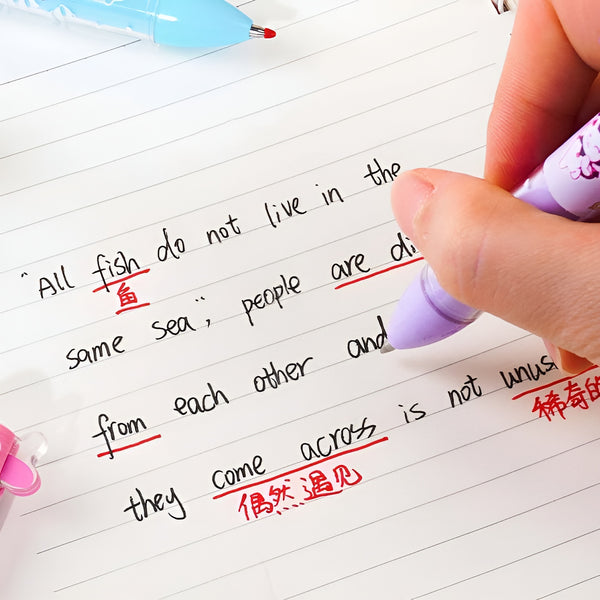 "All fish do not live in the
鱼
same sea"; people are di
from each other and
they come across is not unus
偶然遇见 稀奇的